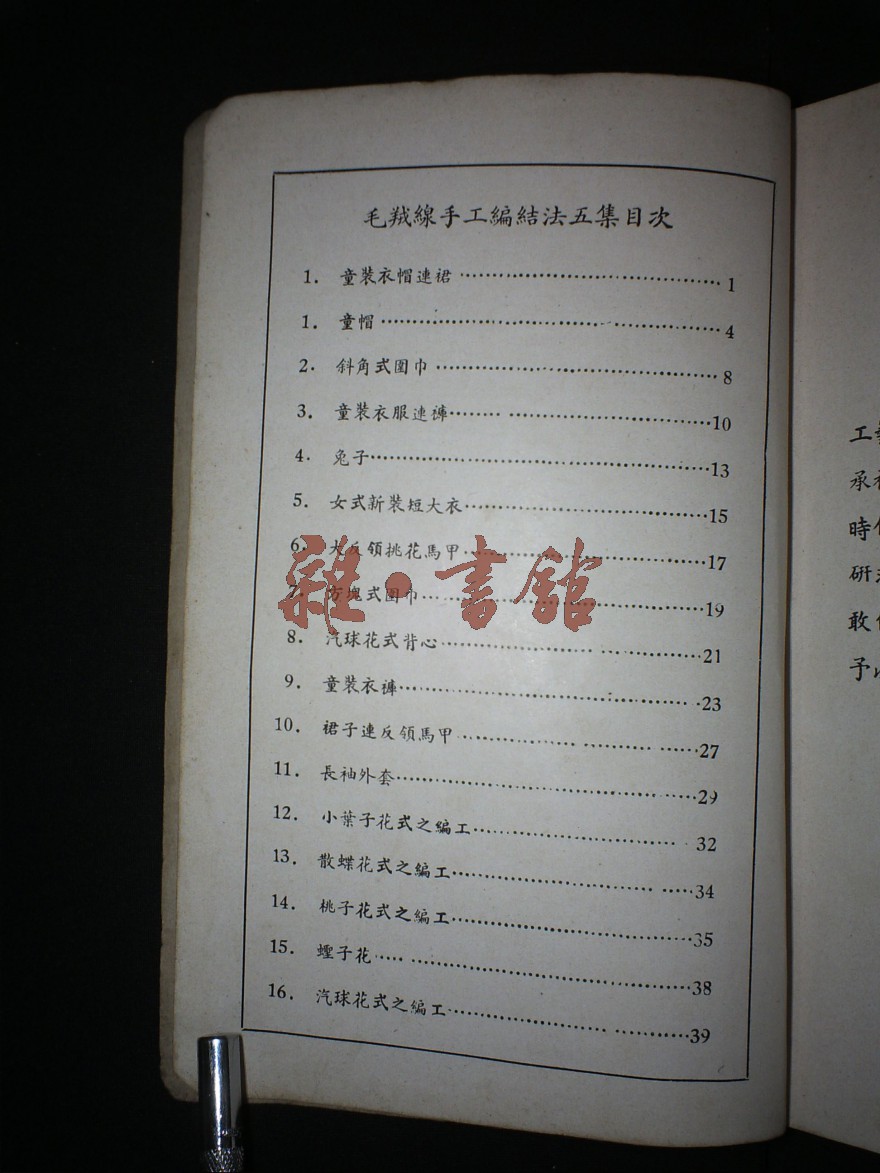 毛羢線手工編結法五集目次
1. 童裝衣帽連裙 1
1. 童帽 4
2. 斜角式圍巾 8
3. 童裝衣服連褲 10
4. 兔子 13
5. 女式新裝短大衣 15
6. 大反領挑花馬甲 17
7. 方塊式圍巾 19
8. 汽球花式背心 21
9. 童裝衣褲 23
10. 裙子連反領馬甲 27
11. 長袖外套 29
12. 小葉子花式之編工 32
13. 散蝶花式之編工 34
14. 桃子花式之編工 35
15. 蟶子花 38
16. 汽球花式之編工 39
雜·書館
工
承
時
研
敢
予